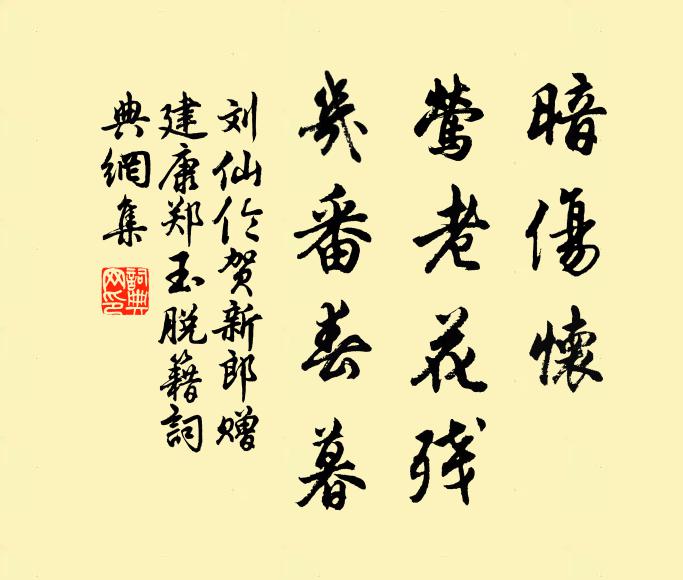 暗傷懷
鶯老花残
幾番春暮
刘仙伦贺新郎赠
建康郑玉脱籍詞
典網集
詞典網印